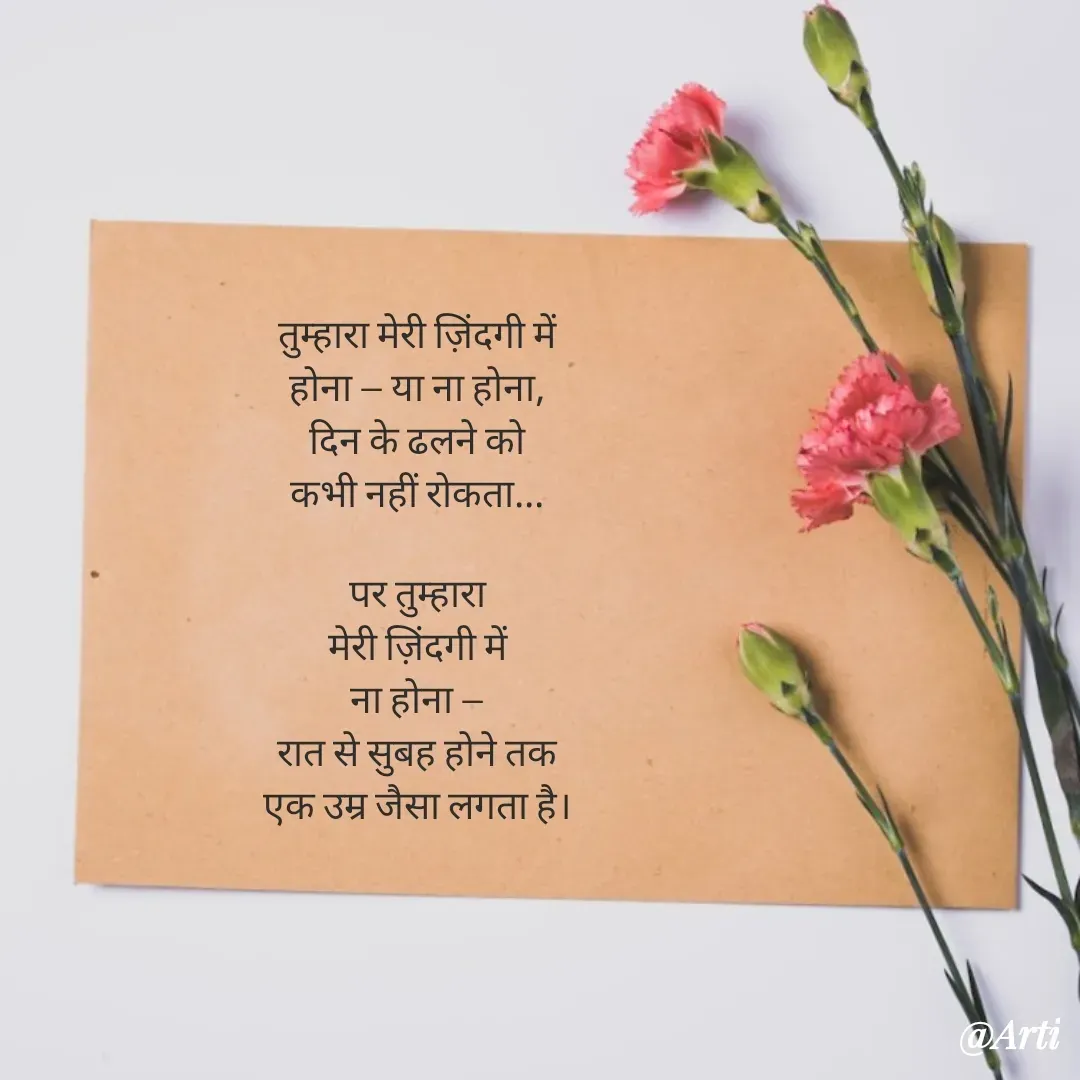 तुम्हारा मेरी ज़िंदगी में
होना – या ना होना,
दिन के ढलने को
कभी नहीं रोकता...
पर तुम्हारा
मेरी ज़िंदगी में
ना होना –
रात से सुबह होने तक
एक उम्र जैसा लगता है।
@Arti